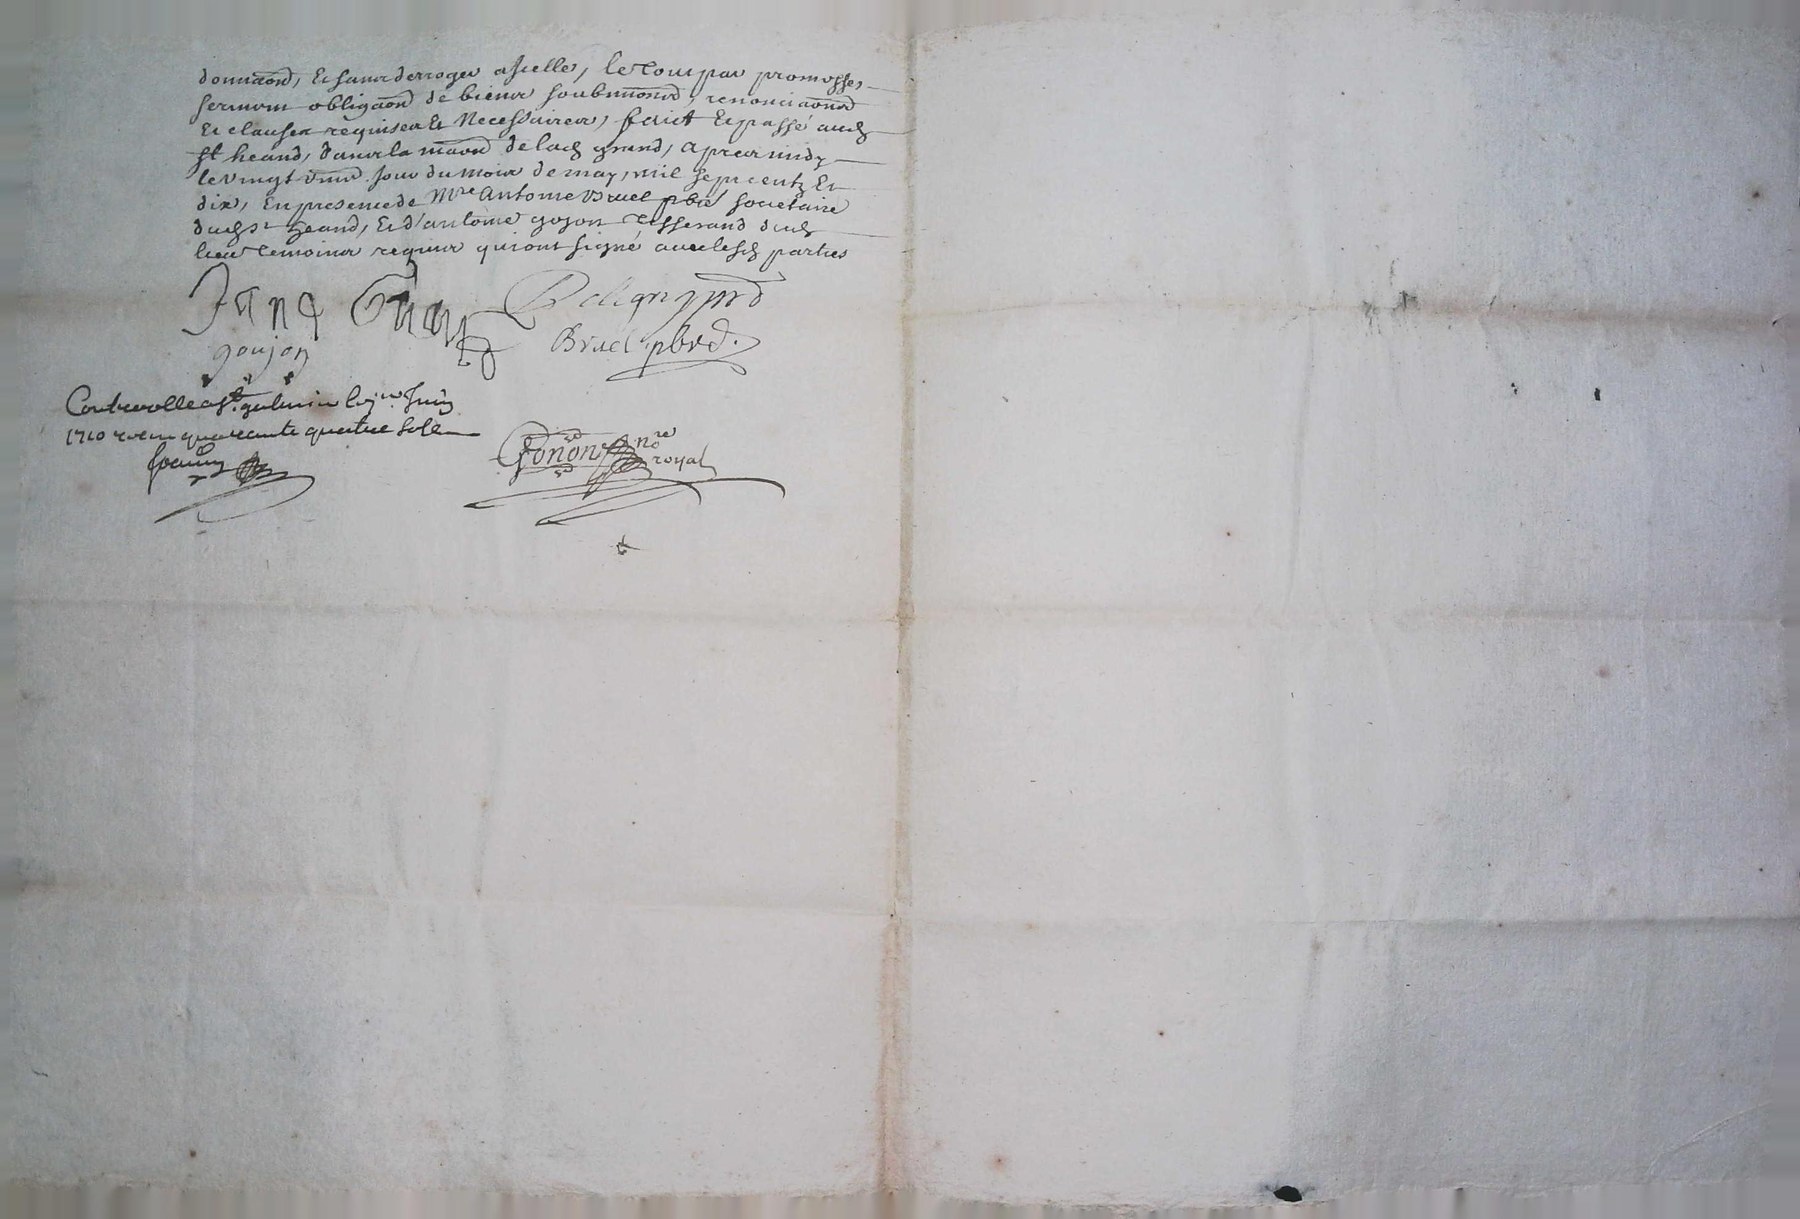 donnaon, Et sans deroger a Icelle, le tout par promesses
sermens obligaon de biens soubmissions, renonciaons
Et clauses requises Et Necessaires, faict Et passé aud
St heand, dans la maon de lad grand, apres midy
le vingt jour du mois de may, mil sept centz Et
dix, En presence de Mre Antoine Bruel pbre societaire
dud St heand, Et d'antoine goyon Tisserand dud
lieu temoins requis qui ont signé avec lesd parties
goujon
Bruel pbre.
Controlle a St galmier le Juin
1710 receu quarante quatre sols
Gonon nore
royal